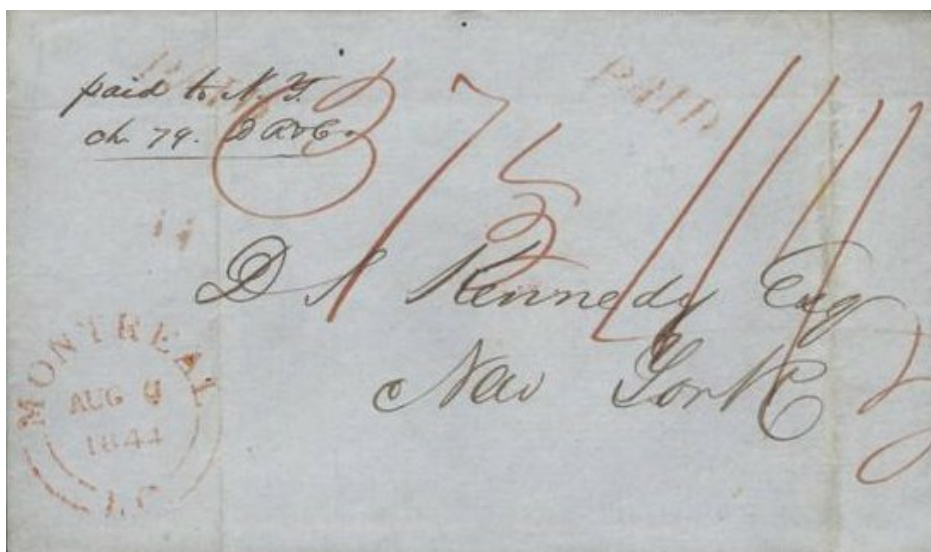 paid to N.Y.
ch. 79.
PAID
37
D S Kennedy Esq
New York
MONTREAL
AUG 9
1844
L.C